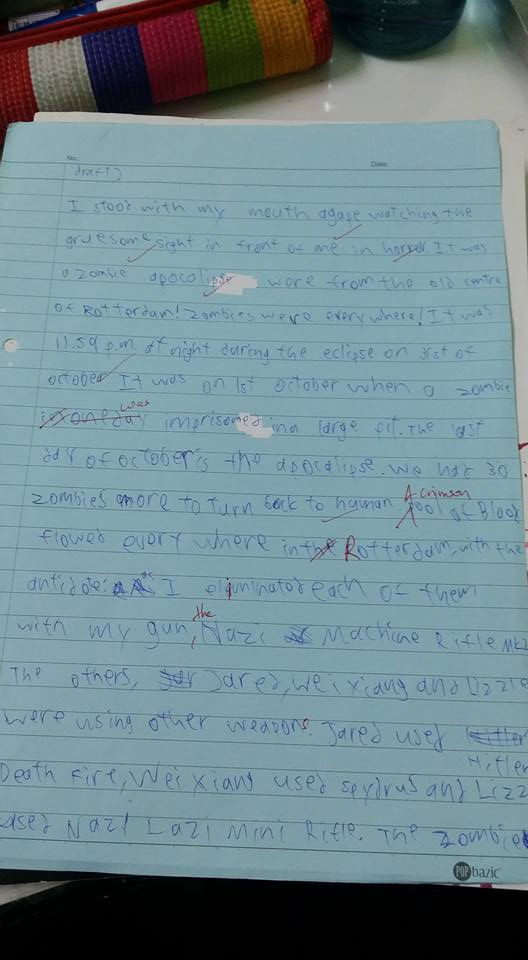 No.
Date:
draft)
I stood with my mouth agape watching the
gruesome sight in front of me in horror. It was
a zombie apocalipse were from the old centre
of Rotterdam! Zombies were everywhere! It was
11.59 p.m. at night during the eclipse on 31st of
october It was on 1st october when a zombie
was imprisoned in a large pit. The last
day of october is the apocalipse. We had 30
zombies more to turn back to human. A crimson pool of Blood
flowed every where in the Rotterdam, with the
antidote. as I eliminator each of them
with my gun, the Nazi Machine Rifle Mk2
The others, Jared, Wei xiang and Lizzie
were using other weapons. Jared used
Hitler
Death fire, Wei Xiang used and Lizz
used Nazi Lazi Mini Rifle. The zombies
POP bazic